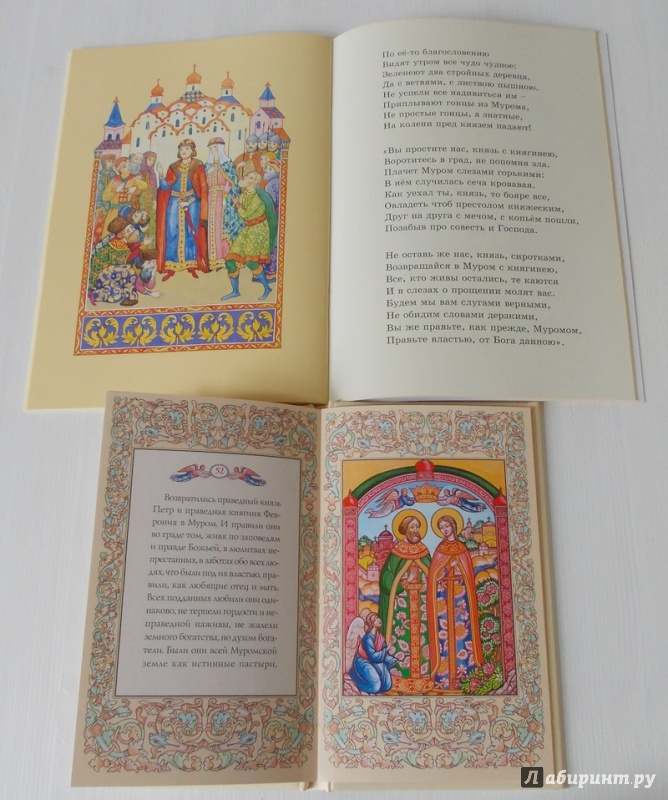 По её-то благословению
Видят утром все чудо чудное:
Зеленеют два стройных деревца,
Да с ветвями, с листвою пышною.
Не успели все надивиться им –
Приплывают гонцы из Мурома,
Не простые гонцы, а знатные,
На колени пред князем падают!
«Вы простите нас, князь с княгинею,
Воротитесь в град, не попомня зла.
Плачет Муром слезами горькими:
В нём случилась сеча кровавая.
Как уехал ты, князь, то бояре все,
Овладеть чтоб престолом княжеским,
Друг на друга с мечом, с копьём пошли,
Позабыв про совесть и Господа.
Не оставь же нас, князь, сиротками,
Возвращайся в Муром с княгинею,
Все, кто живы остались, те каются
И в слезах о прощении молят вас.
Будем мы вам слугами верными,
Не обидим словами дерзкими,
Вы же правьте, как прежде, Муромом,
Правьте властью, от Бога данною».
52
Возвратились праведный князь
Петр и праведная княгиня Фев-
рония в Муром. И правили они
во граде том, живя по заповедям
и правде Божьей, в молитвах не-
престанных, в заботах обо всех лю-
дях, что были под их властью, пра-
вили, как любящие отец и мать.
Всех подданных любили они оди-
наково, не терпели гордости и не-
праведной наживы, не жалели
земного богатства, но духом бога-
тели. Были они всей Муромской
земле как истинные пастыри,
Лабиринт.ру